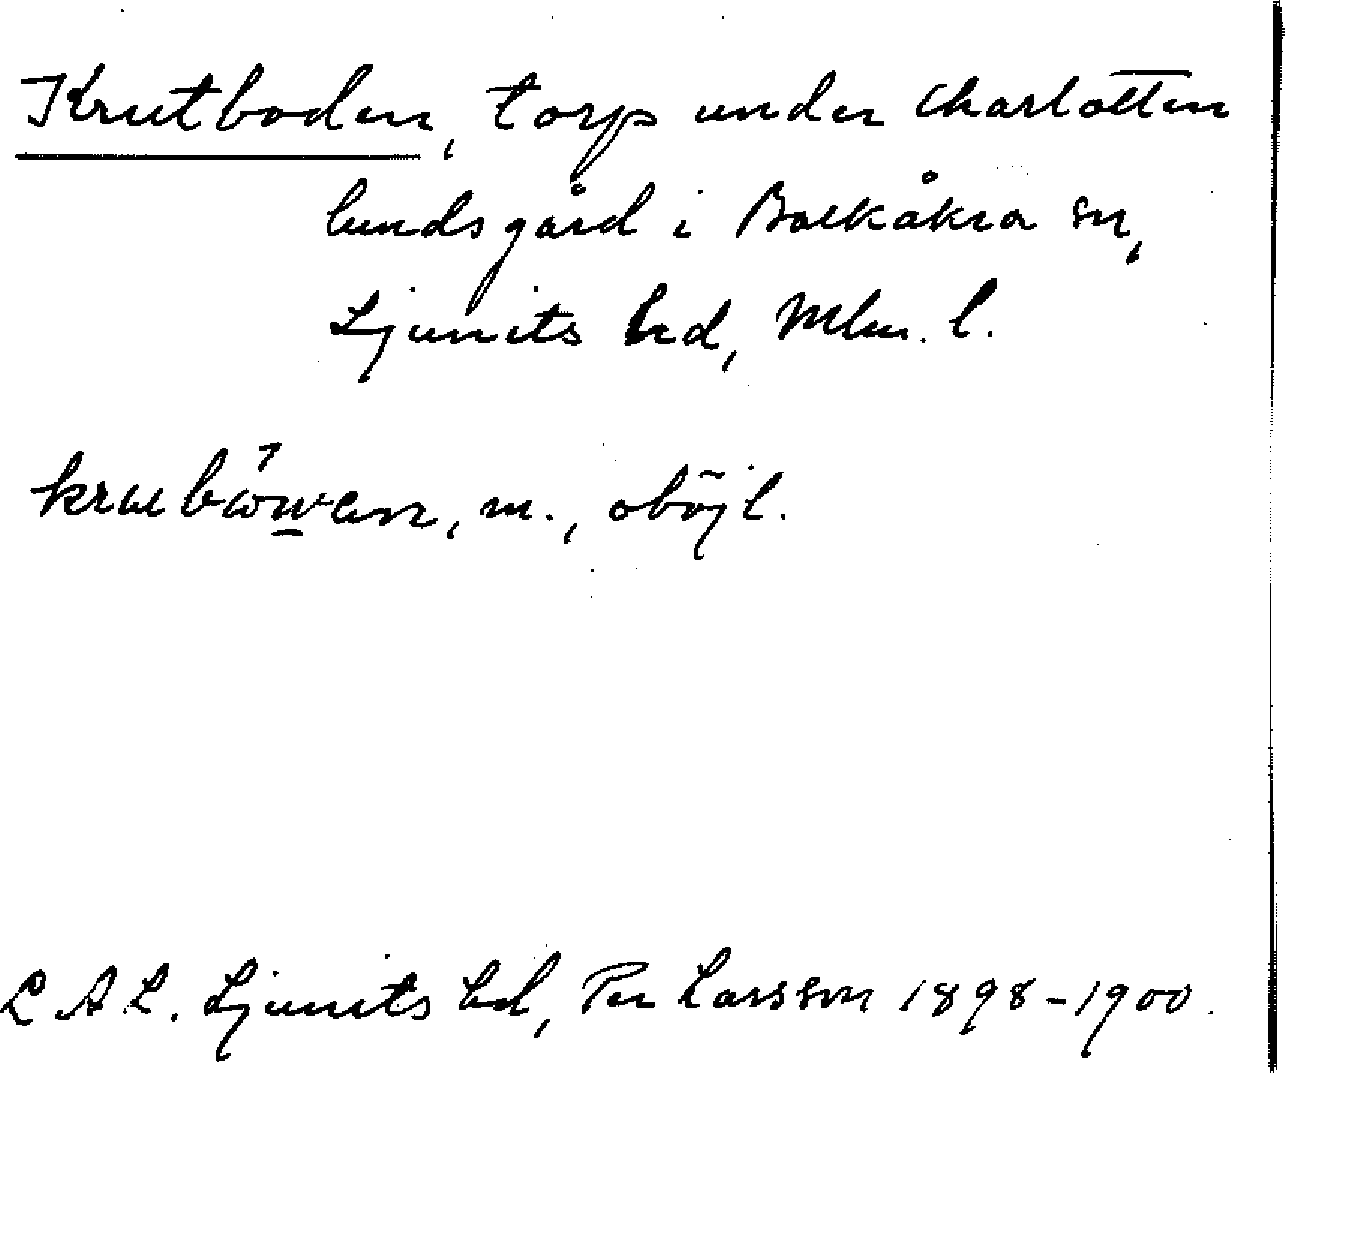 Krutboden, torp under Charlotten
lundsgård i Balkåkra sn,
Ljunits hd, Mlm. l.
m., oböjl.
L A L. Ljunits hd, Per Larsson 1898-1900.